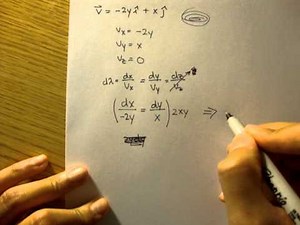 v⃗ = -2yî + xĵ
vx = -2y
vy = x
vz = 0
dλ = dx/vx = dy/vy = dz/vz
(dx/-2y = dy/x) 2xy ⇒